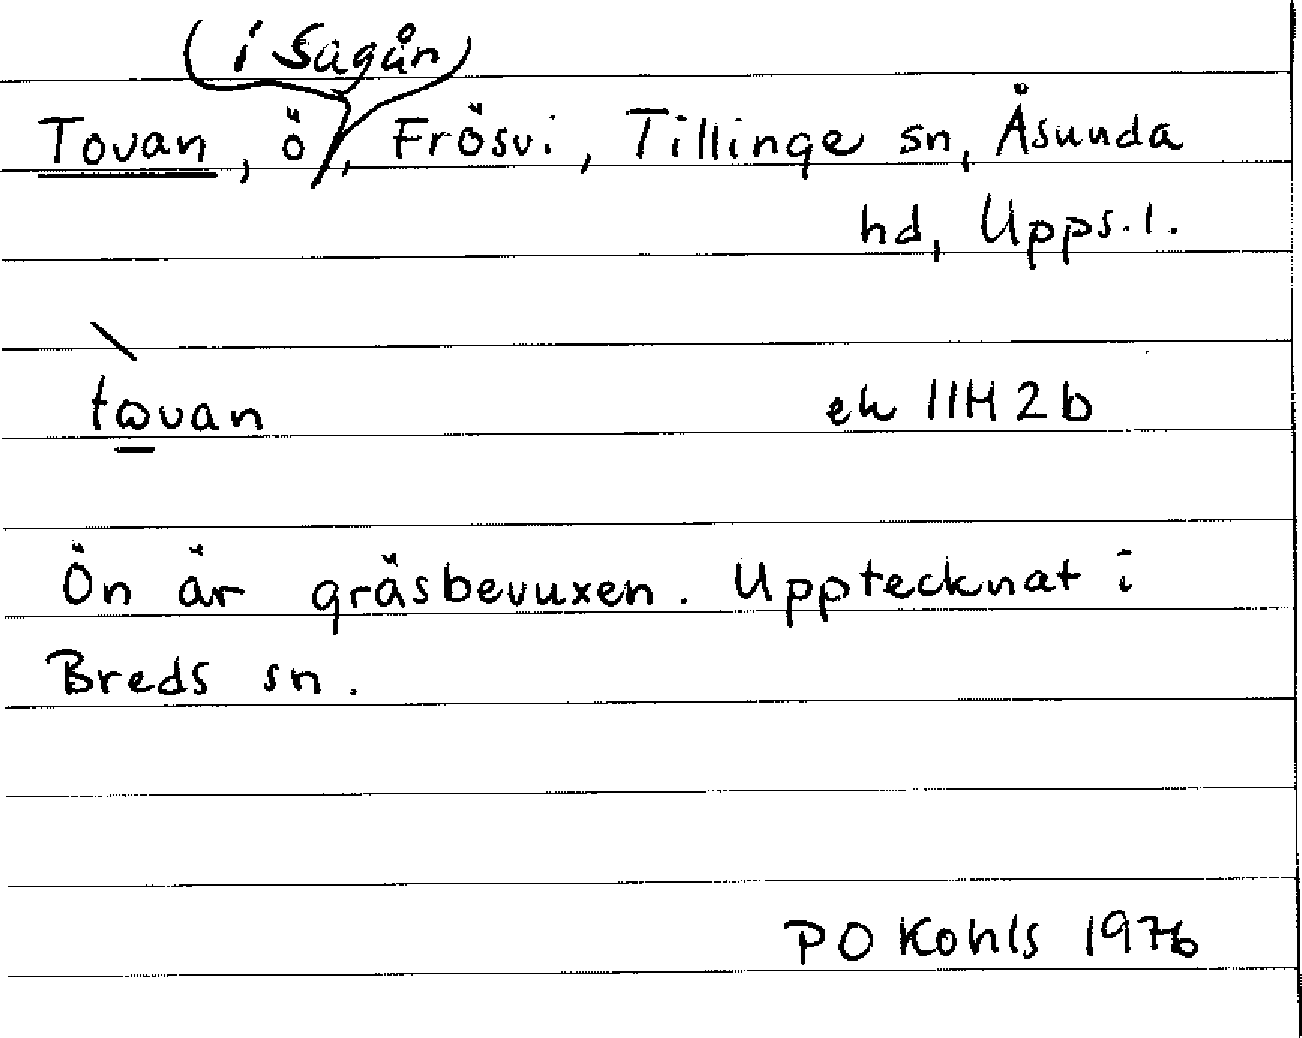 (i Sagån)
Tovan, ö, Frösvi, Tillinge sn, Åsunda
hd, Upps. l.
tωvan ek 11H 2b
Ön är gräsbevuxen. Upptecknat i
Breds sn.
PO Kohls 1976